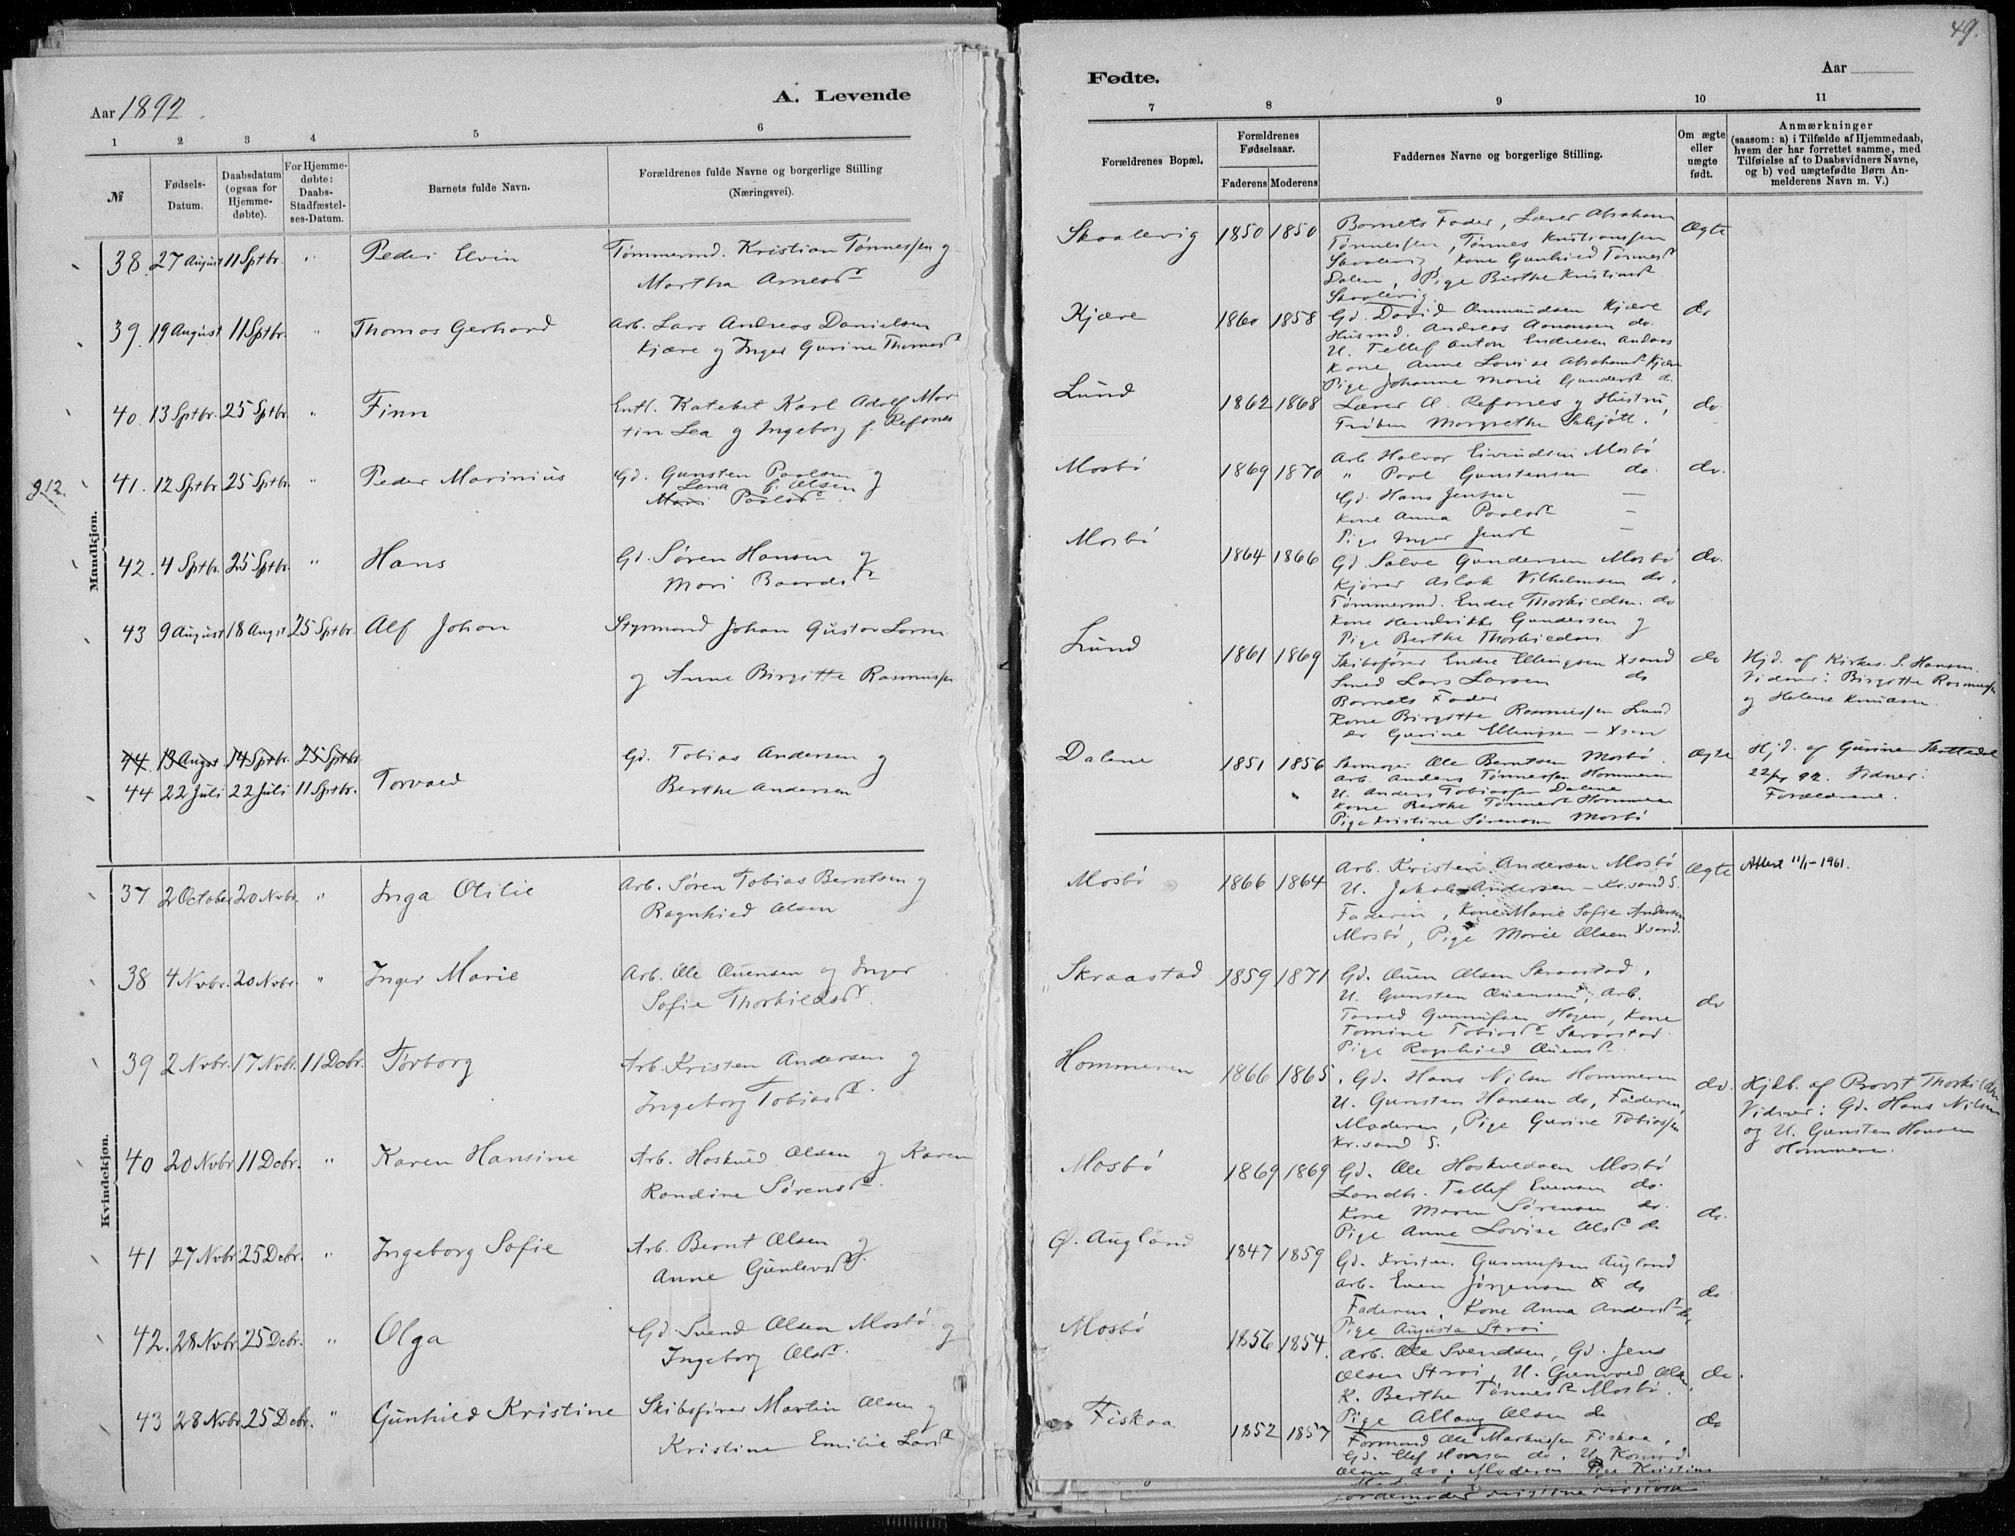 49.
Aar 1892.
A. Levende
Fødte.
Aar
1 2 3 4 5 6
7 8 9 10 11
№
Fødsels-Datum.
Daabsdatum (ogsaa for Hjemmedøbte).
For Hjemmedøbte: Daabs-Stadfæstelses-Datum.
Barnets fulde Navn.
Forældrenes fulde Navne og borgerlige Stilling (Næringsvei).
Forældrenes Bopæl.
Forældrenes Fødselsaar.
Faderens Moderens
Faddernes Navne og borgerlige Stilling.
Om ægte eller uægte født.
Anmærkninger (saasom: a) i Tilfælde af Hjemmedaab, hvem der har forrettet samme, med Tilføielse af to Daabsvidners Navne, og b) ved uægtefødte Børn Anmelderens Navn m. V.)
Mandkjøn.
38. 27 August 11 Sptbr. " Peder Elvin
Tømmermd. Kristian Tønnessen og
Martha Arnesd.
Skaalevig 1850 1850
Barnets Fader, Lærer Abraham
Tønnessen, Tønnes Kristianssen
Skaalevig, Kone Gunhild Tønnesd.
Dalen, Pige Berthe Kristiansd.
Skaalevig
Ægte
39. 19 August 11 Sptbr. " Thomas Gerhard
Arb. Lars Andreas Danielsen
Kjære og Inger Gurine Thomasd.
Kjære 1860 1858
Gd. David Ommundsen Kjære
Husmd. Andreas Aanensen do.
U. Tellef Anton Endresen Andaas
Kone Anne Lovise Abrahamsd. Kjære
Pige Johanne Marie Gundersd. do.
do
40. 13 Sptbr. 25 Sptbr. " Finn
Entl. Katebet Karl Adolf Mar
tin Lea og Ingeborg f. Refsnes
Lund 1862 1868
Lærer O. Refsnes og Hustru,
Frøken Margrethe Schjött.
do.
912.
41. 12 Sptbr. 25 Sptbr. " Peder Marinius
Gd. Gunsten Paalsen og
Lena f. Olsen
Mari Paalsd.
Mosbø 1869 1870
Arb. Halvor Eivindsen Mosbø
" Paal Gunstensen do.
Gd. Hans Jensen —
Kone Anna Paalsd. —
Pige Inger Jensd. —
do.
42. 4 Sptbr. 25 Sptbr. " Hans
Gd. Søren Hansen og
Mari Baardsd.
Mosbø 1864 1866
Gd. Salve Gundersen Mosbø
Kjører Aslak Vilhelmsen do.
Tømmermd. Endre Thorkildsn. do
Kone Hendrikke Gundersen og
Pige Berthe Thorkildsen
do.
43 9 August 18 Augst 25 Sptbr. Alf Johan
Styrmand Johan Gustav Larsen
og Anne Birgitte Rasmussen
Lund 1861 1869
Skibsfører Endre Ellingsen Xsand
Smed Lars Larsen do
Barnets Fader
Kone Birgitte Rasmussen Lund
do Gurine Ellingsen — Xsan
do
Hjd. af Kirkes. S. Hansen.
Vidner: Birgitte Rasmussen
og Helene Knudsen.
44. 13 Augst 14 Sptbr. 25 Sptbr.
44 22 Juli 22 Juli 11 Sptbr. Torvald
Gd. Tobias Andersen og
Berthe Andersen
Dalene 1851 1856
Ole Berntsen Mosbø.
Arb. Anders Tønnessen Hommeren
U. Anders Tobiassen Dalene
Kone Berthe Tønnesd. Hommeren
Pige Kristine Sørensen Mosbø
Ægte
Hjd. af Gurine
22/7 92. Vidner:
Forældrene.
Kvindekjøn.
37 2 October 20 Nvbr. " Inga Otilie
Arb. Søren Tobias Berntsen og
Ragnhild Olsen
Mosbø 1866 1864
Arb. Kristen Andersen Mosbø
U. Jakob Andersen — Kr.sand S.
Faderen, Kone Marie Sofie Andersen
Mosbø, Pige Marie Olsen Xsand.
Ægte
Attest 11/1-1961.
38 4 Nvbr. 20 Nvbr. " Inger Marie
Arb. Ole Øuensen og Inger
Sofie Thorkildsd.
Skraastad 1859 1871
Gd. Øuen Olsen Skraastad,
U. Gunsten Øuensen, Arb.
Gunnufsen Hagen, Kone
Tomine Tobiasd. Skraastad.
Pige Ragnhild Øuensd.
do
39 2 Nvbr. 17 Nvbr. 11 Dcbr. Torborg
Arb. Kristen Andersen og
Ingeborg Tobiasd.
Hommeren 1866 1865
Gd. Hans Nilsen Hommeren
U. Gunsten Hansen do, Faderen,
Moderen, Pige Gurine Tobiassen
Kr.sand S.
do.
Hjdb. af Provst Thorkildsen
Vidner: Gd. Hans Nilsen
og U. Gunsten Hansen
Hommeren.
40 20 Nvbr 11 Dcbr. " Karen Hansine
Arb. Hoskuld Olsen og Karen
Randine Sørensd.
Mosbø 1869 1869
Gd. Ole Hoskuldsen Mosbø
Landh. Tellef Evensen do.
Kone Maren Sørensen do.
Pige Anne Lovise Olsd. do
do.
41 27 Nvbr 25 Dcbr. " Ingeborg Sofie
Arb. Bernt Olsen og
Anne Gunlevsd.
Ø. Augland 1847 1859
Gd. Kristen Gunnufsen Augland
Arb. Even Jørgensen do
Faderen, Kone Anna Andersd. do,
Pige Augusta Strai
do
42. 28 Nvbr. 25 Dcbr. " Olga
Gd. Svend Olsen Mosbø og
Ingeborg Olsd.
Mosbø 1856 1854.
Arb. Ole Svendsen, Gd. Jens
Olsen Strai, U. Gunvald Olsen,
K. Berthe Tønnesd. Mosbø.
Pige Aslaug Olsen do
do.
43 28 Nvbr. 25 Dcbr. " Gunhild Kristine
Skibsfører Martin Olsen og
Kristine Emilie Larsd.
Fiskaa 1852 1857
Formand Ole Markussen Fiskaa,
Gd. Olef Hansen do. U. Konrad
Olsen do, Moderen Pige Kristine
Jordemoder Kristine
do